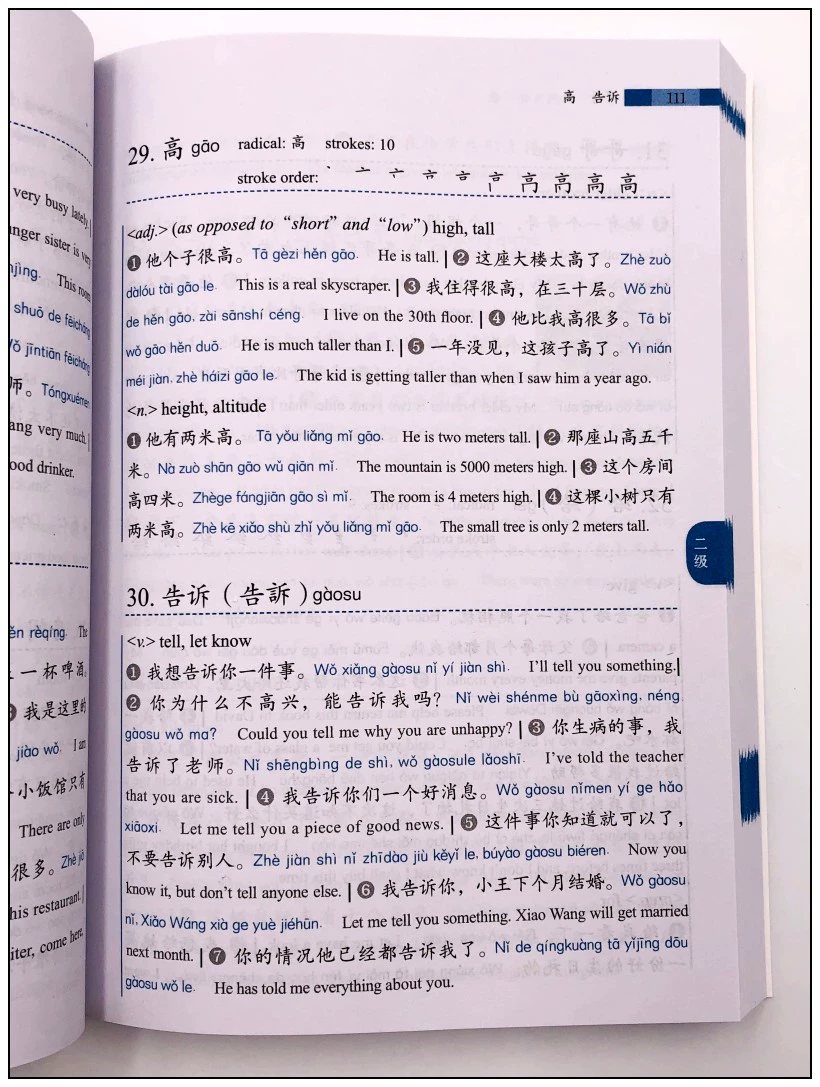 very busy lately.
nger sister is very
njìng. This room
shuō de fēicháng
ǒ jīntiān fēicháng
师。Tóngxuémen
ang very much.
ood drinker.
ěn rèqíng. The
一杯啤酒。
我是这里的
jiào wǒ. I am
小饭馆只有
There are only
很多。Zhè jiā
his restaurant.
iter, come here.
高 告诉 111
29. 高 gāo radical: 高 strokes: 10
stroke order:
<adj.> (as opposed to “short” and “low”) high, tall
❶ 他个子很高。Tā gèzi hěn gāo. He is tall. | ❷ 这座大楼太高了。Zhè zuò
dàlóu tài gāo le. This is a real skyscraper. | ❸ 我住得很高，在三十层。Wǒ zhù
de hěn gāo, zài sānshí céng. I live on the 30th floor. | ❹ 他比我高很多。Tā bǐ
wǒ gāo hěn duō. He is much taller than I. | ❺ 一年没见，这孩子高了。Yì nián
méi jiàn, zhè háizi gāo le. The kid is getting taller than when I saw him a year ago.
<n.> height, altitude
❶ 他有两米高。Tā yǒu liǎng mǐ gāo. He is two meters tall. | ❷ 那座山高五千
米。Nà zuò shān gāo wǔ qiān mǐ. The mountain is 5000 meters high. | ❸ 这个房间
高四米。Zhège fángjiān gāo sì mǐ. The room is 4 meters high. | ❹ 这棵小树只有
两米高。Zhè kē xiǎo shù zhǐ yǒu liǎng mǐ gāo. The small tree is only 2 meters tall.
二级
30. 告诉（告訴）gàosu
<v.> tell, let know
❶ 我想告诉你一件事。Wǒ xiǎng gàosu nǐ yí jiàn shì. I’ll tell you something. |
❷ 你为什么不高兴，能告诉我吗？ Nǐ wèi shénme bù gāoxìng, néng
gàosu wǒ ma? Could you tell me why you are unhappy? | ❸ 你生病的事，我
告诉了老师。Nǐ shēngbìng de shì, wǒ gàosule lǎoshī. I’ve told the teacher
that you are sick. | ❹ 我告诉你们一个好消息。Wǒ gàosu nǐmen yí ge hǎo
xiāoxi. Let me tell you a piece of good news. | ❺ 这件事你知道就可以了，
不要告诉别人。Zhè jiàn shì nǐ zhīdào jiù kěyǐ le, búyào gàosu biéren. Now you
know it, but don’t tell anyone else. | ❻ 我告诉你，小王下个月结婚。Wǒ gàosu
nǐ, Xiǎo Wáng xià ge yuè jiéhūn. Let me tell you something. Xiao Wang will get married
next month. | ❼ 你的情况他已经都告诉我了。Nǐ de qíngkuàng tā yǐjīng dōu
gàosu wǒ le. He has told me everything about you.